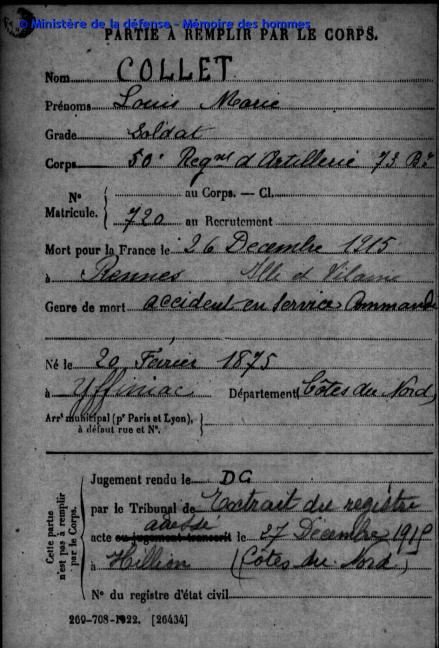 © Ministère de la défense - Mémoire des hommes
PARTIE À REMPLIR PAR LE CORPS.
Nom COLLET
Prénoms Louis Marie
Grade Soldat
Corps 50e Regnt d'Artillerie 73 Bie
N° Matricule. { au Corps. — Cl.
720 au Recrutement
Mort pour la France le 26 Decembre 1915
à Rennes Ille et Vilaine
Genre de mort accident en service Commandé
Né le 20 Février 1875
à Yffiniac Département Côtes du Nord
Arrt municipal (pr Paris et Lyon),
à défaut rue et N°.
Cette partie n'est pas à remplir par le Corps.
Jugement rendu le DG
par le Tribunal de Extrait du registre
adressé
acte ou jugement transcrit le 27 Décembre 1915
à Hillion (Côtes du Nord)
N° du registre d'état civil
269-708-1922. [26434]